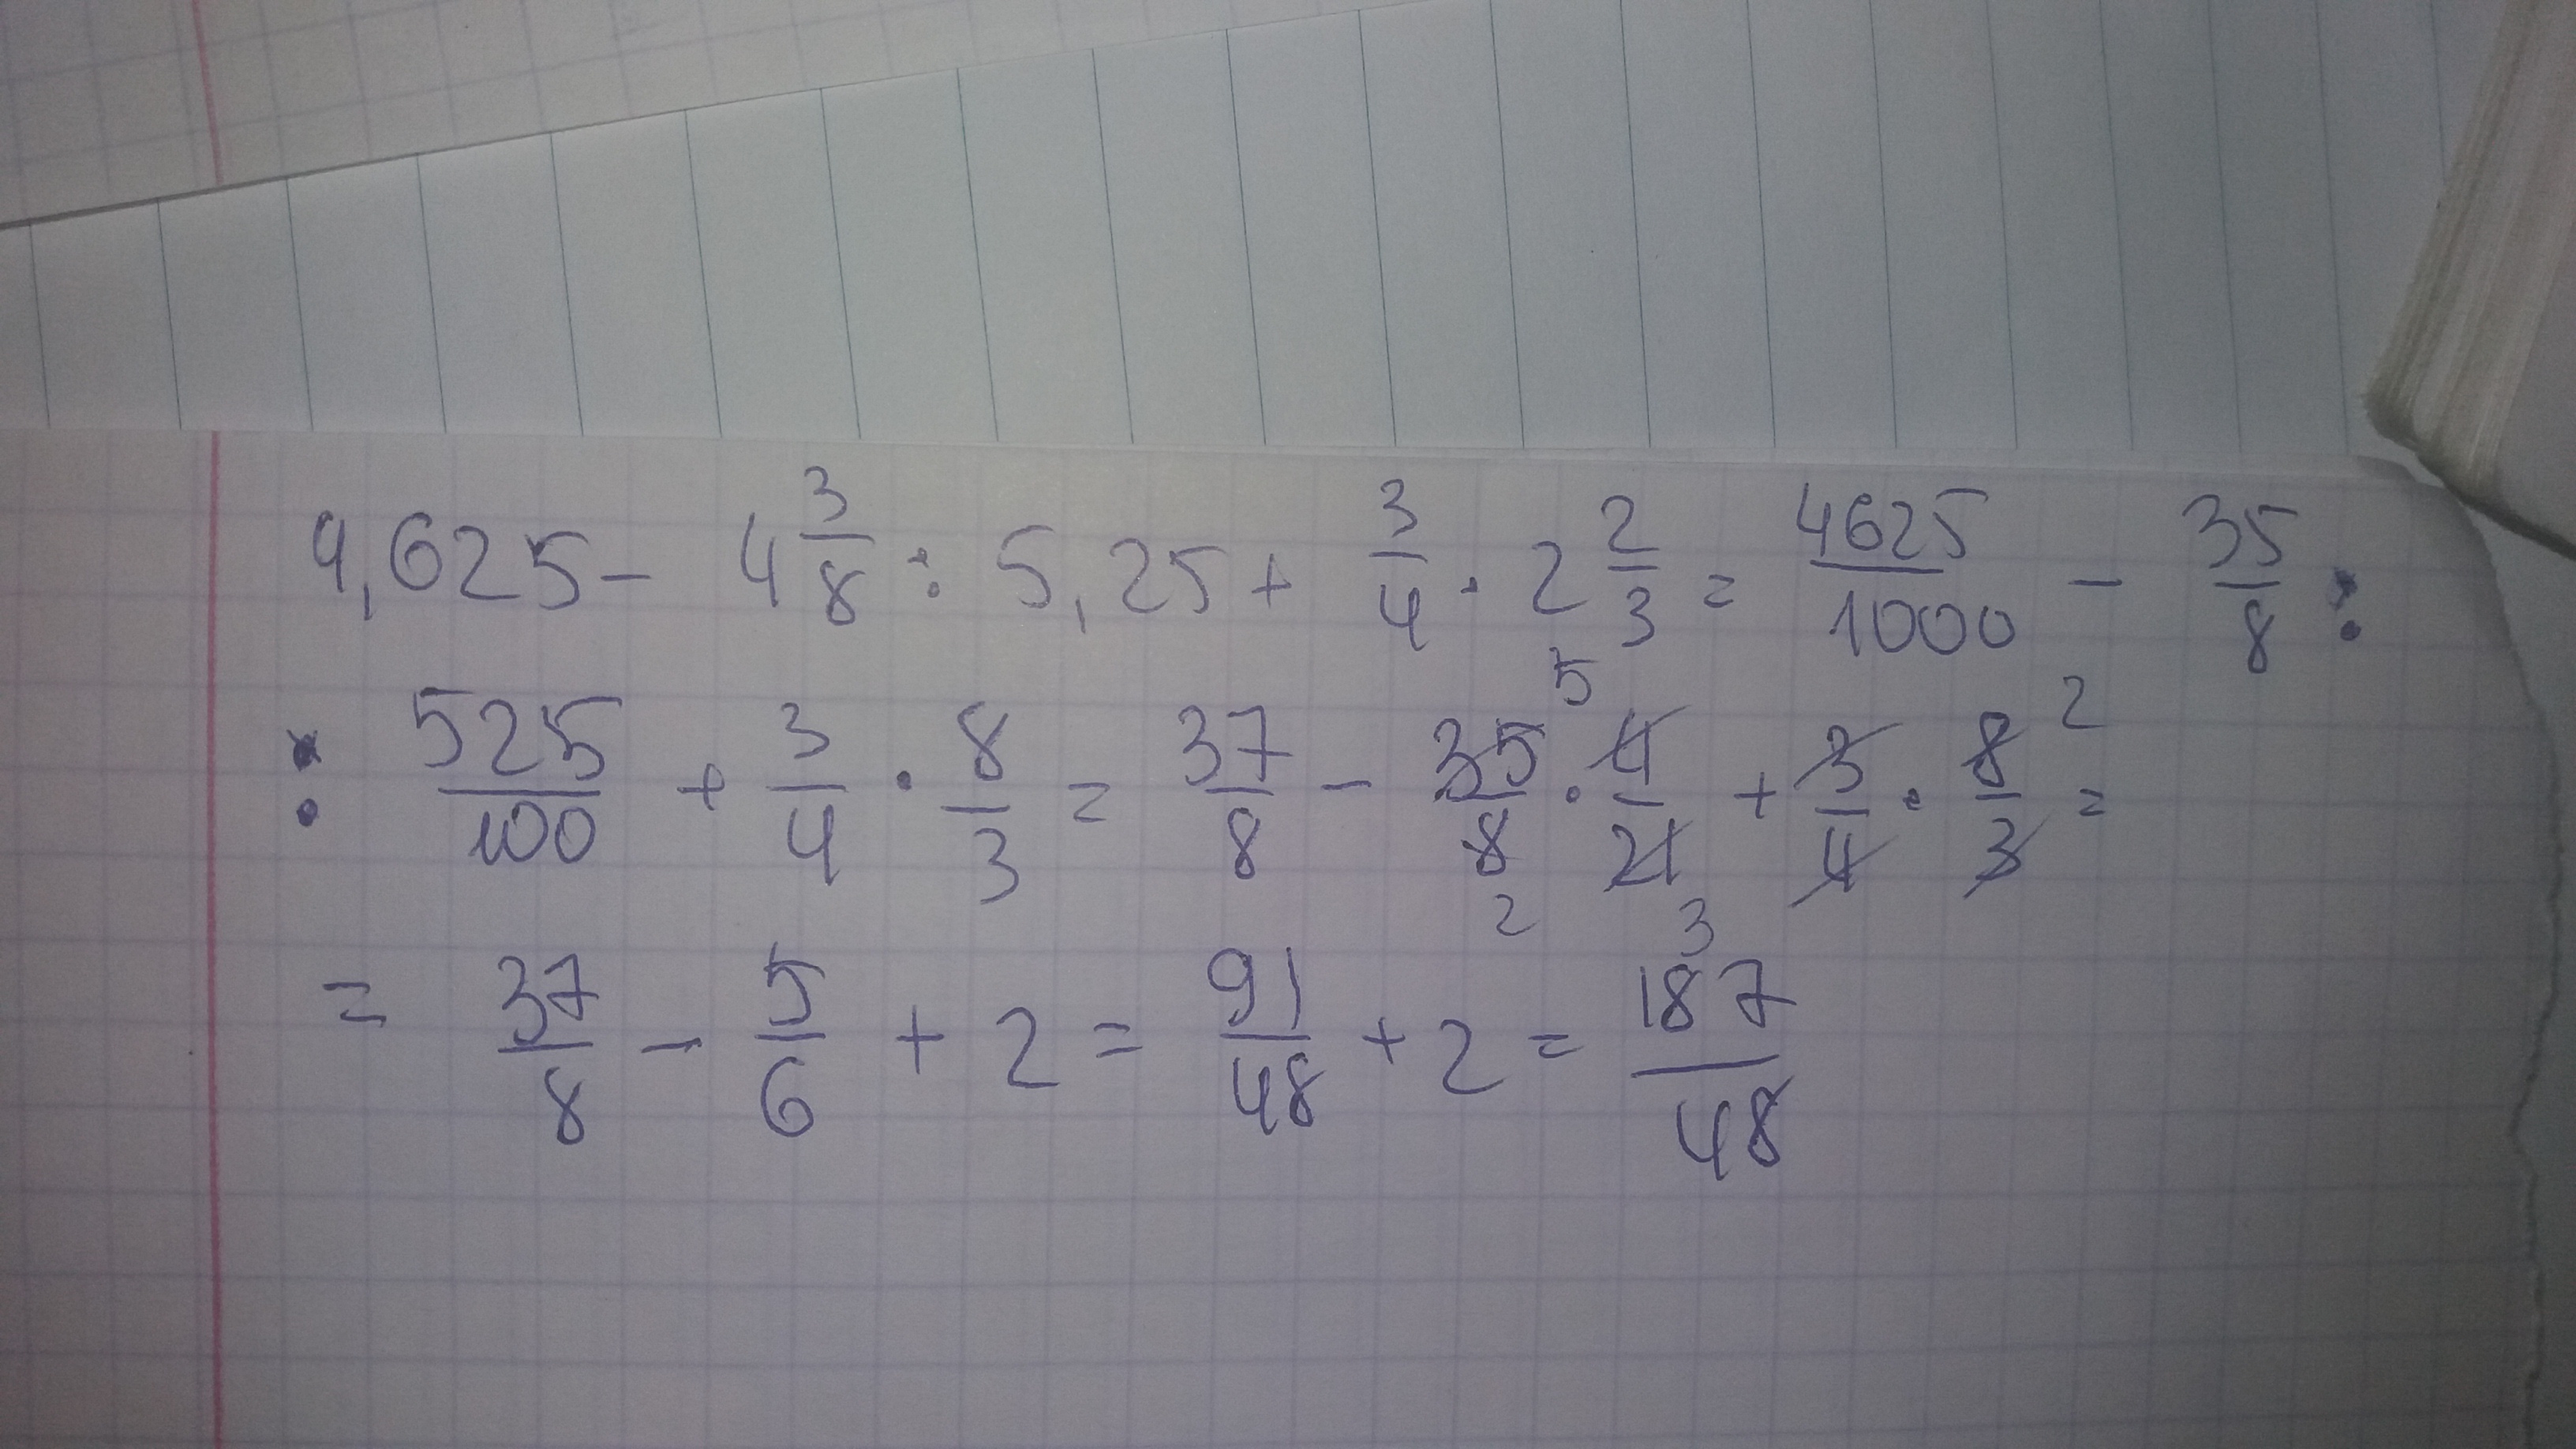 4,625 - 4 3/8 : 5,25 + 3/4 · 2 2/3 = 4625/1000 - 35/8 :
: 525/100 + 3/4 · 8/3 = 37/8 - 35/8 5 2 · 4/21 3 + 3/4 · 8/3 2 =
= 37/8 - 5/6 + 2 = 91/48 + 2 = 187/48